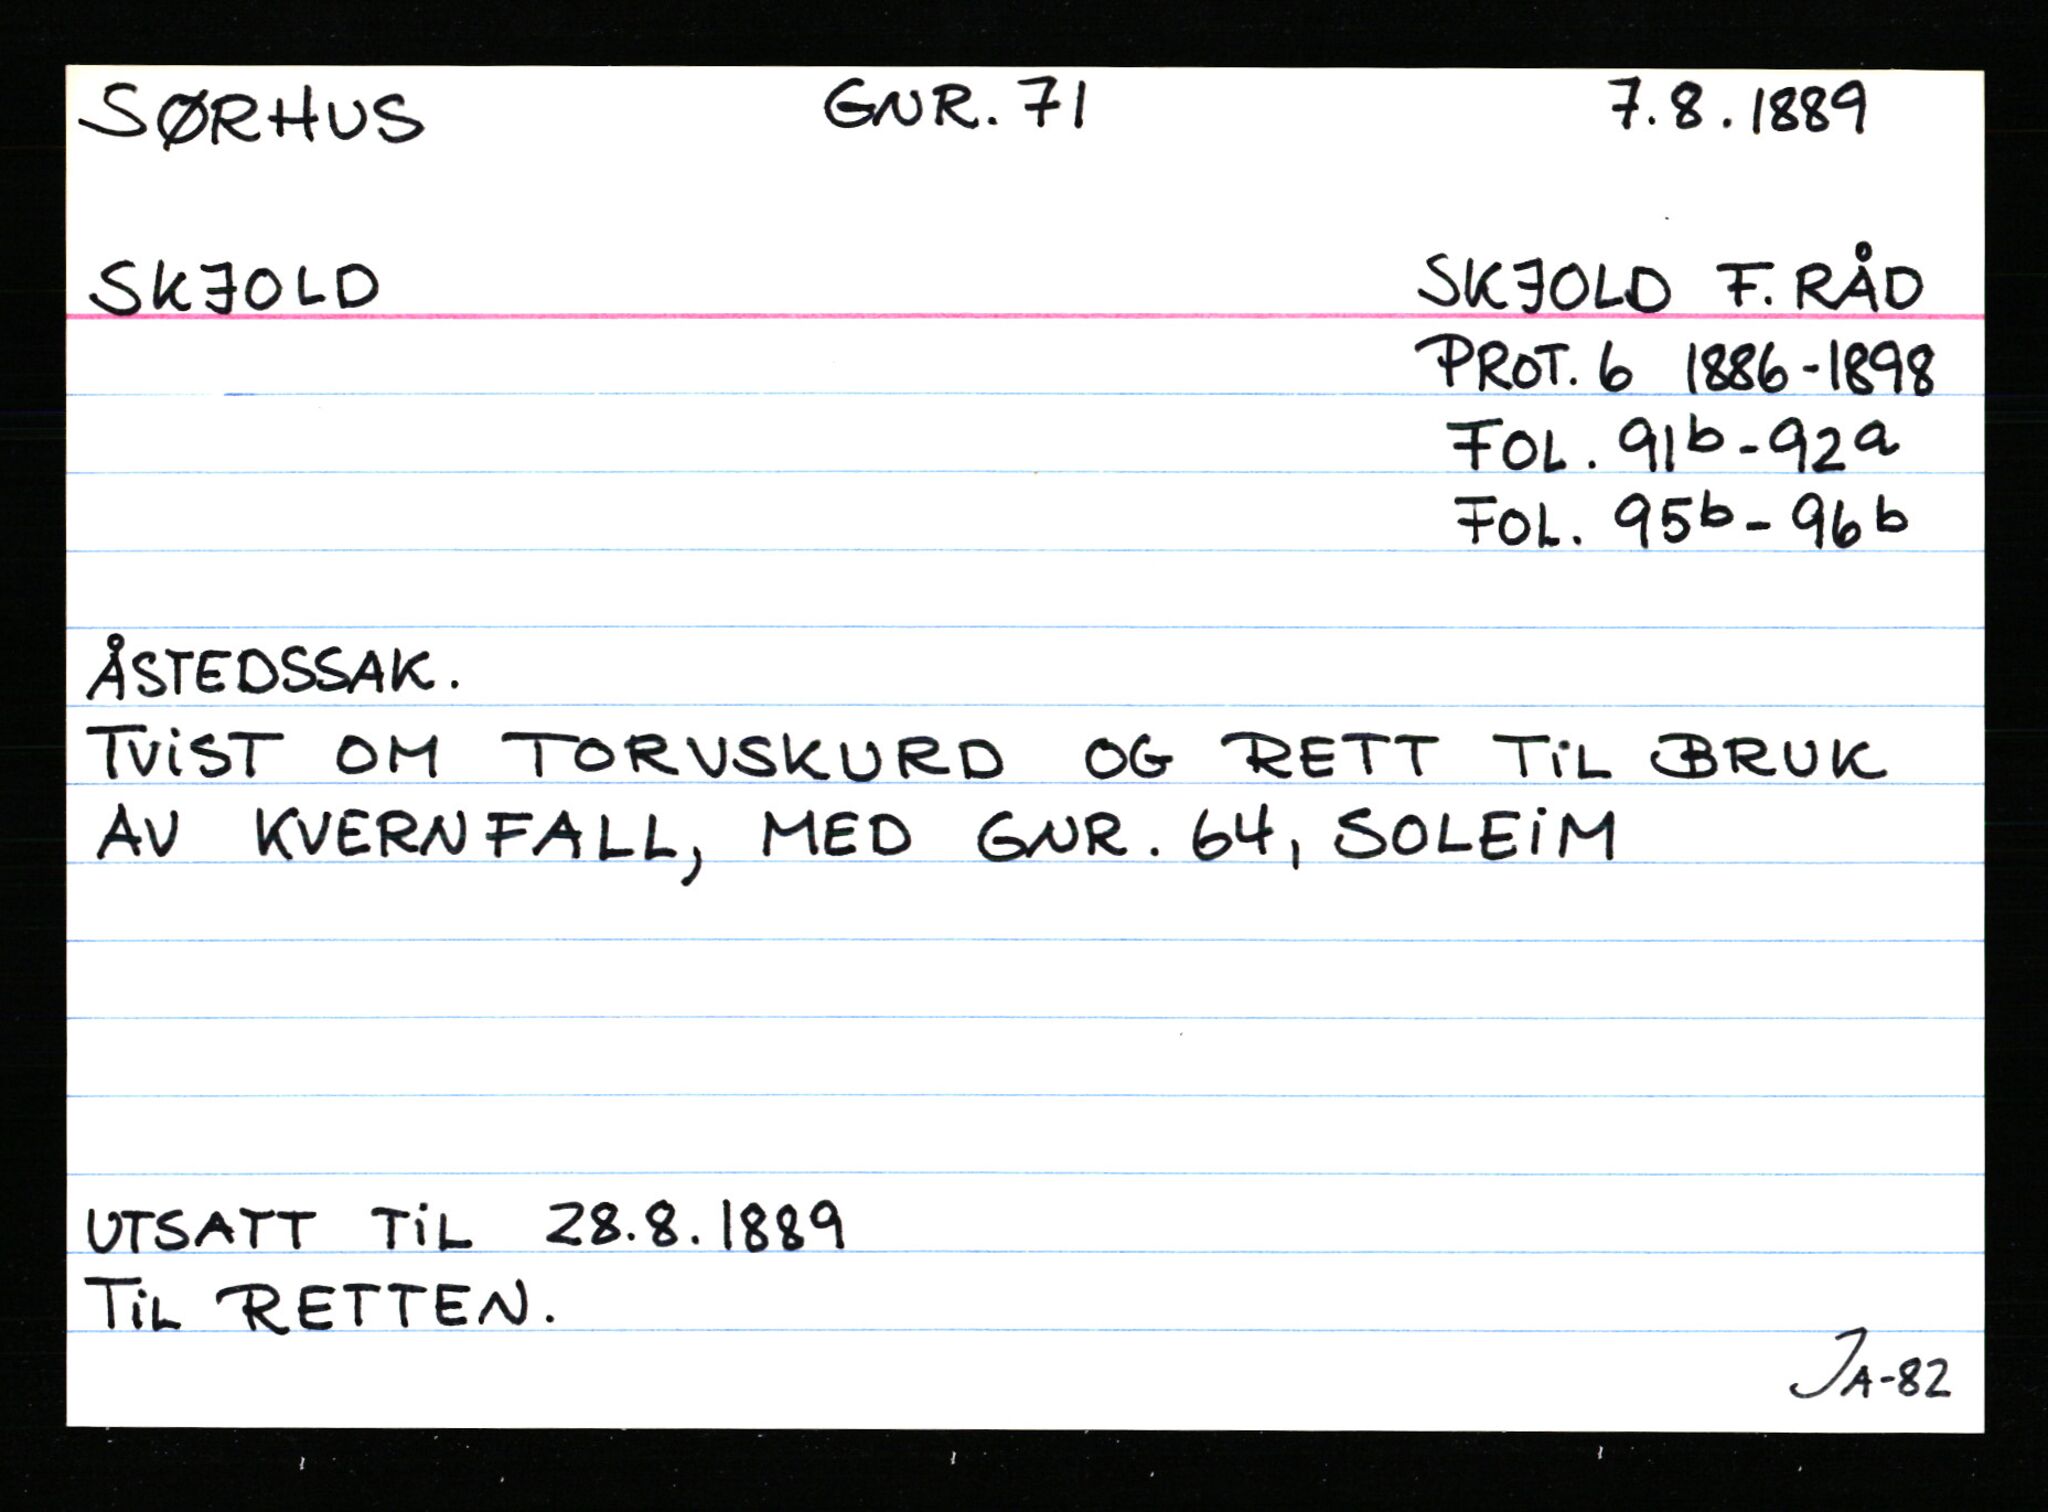 SØRHUS GNR. 71 7.8.1889
SKJOLD SKJOLD F. RÅD
PROT. 6 1886-1898
FOL. 91b-92a
FOL. 95b-96b
ÅSTEDSSAK.
TViST OM TORVSKURD OG RETT TiL BRUK
AV KVERNFALL, MED GNR. 64, SOLEiM
UTSATT TiL 28.8.1889
TiL RETTEN.
JA-82